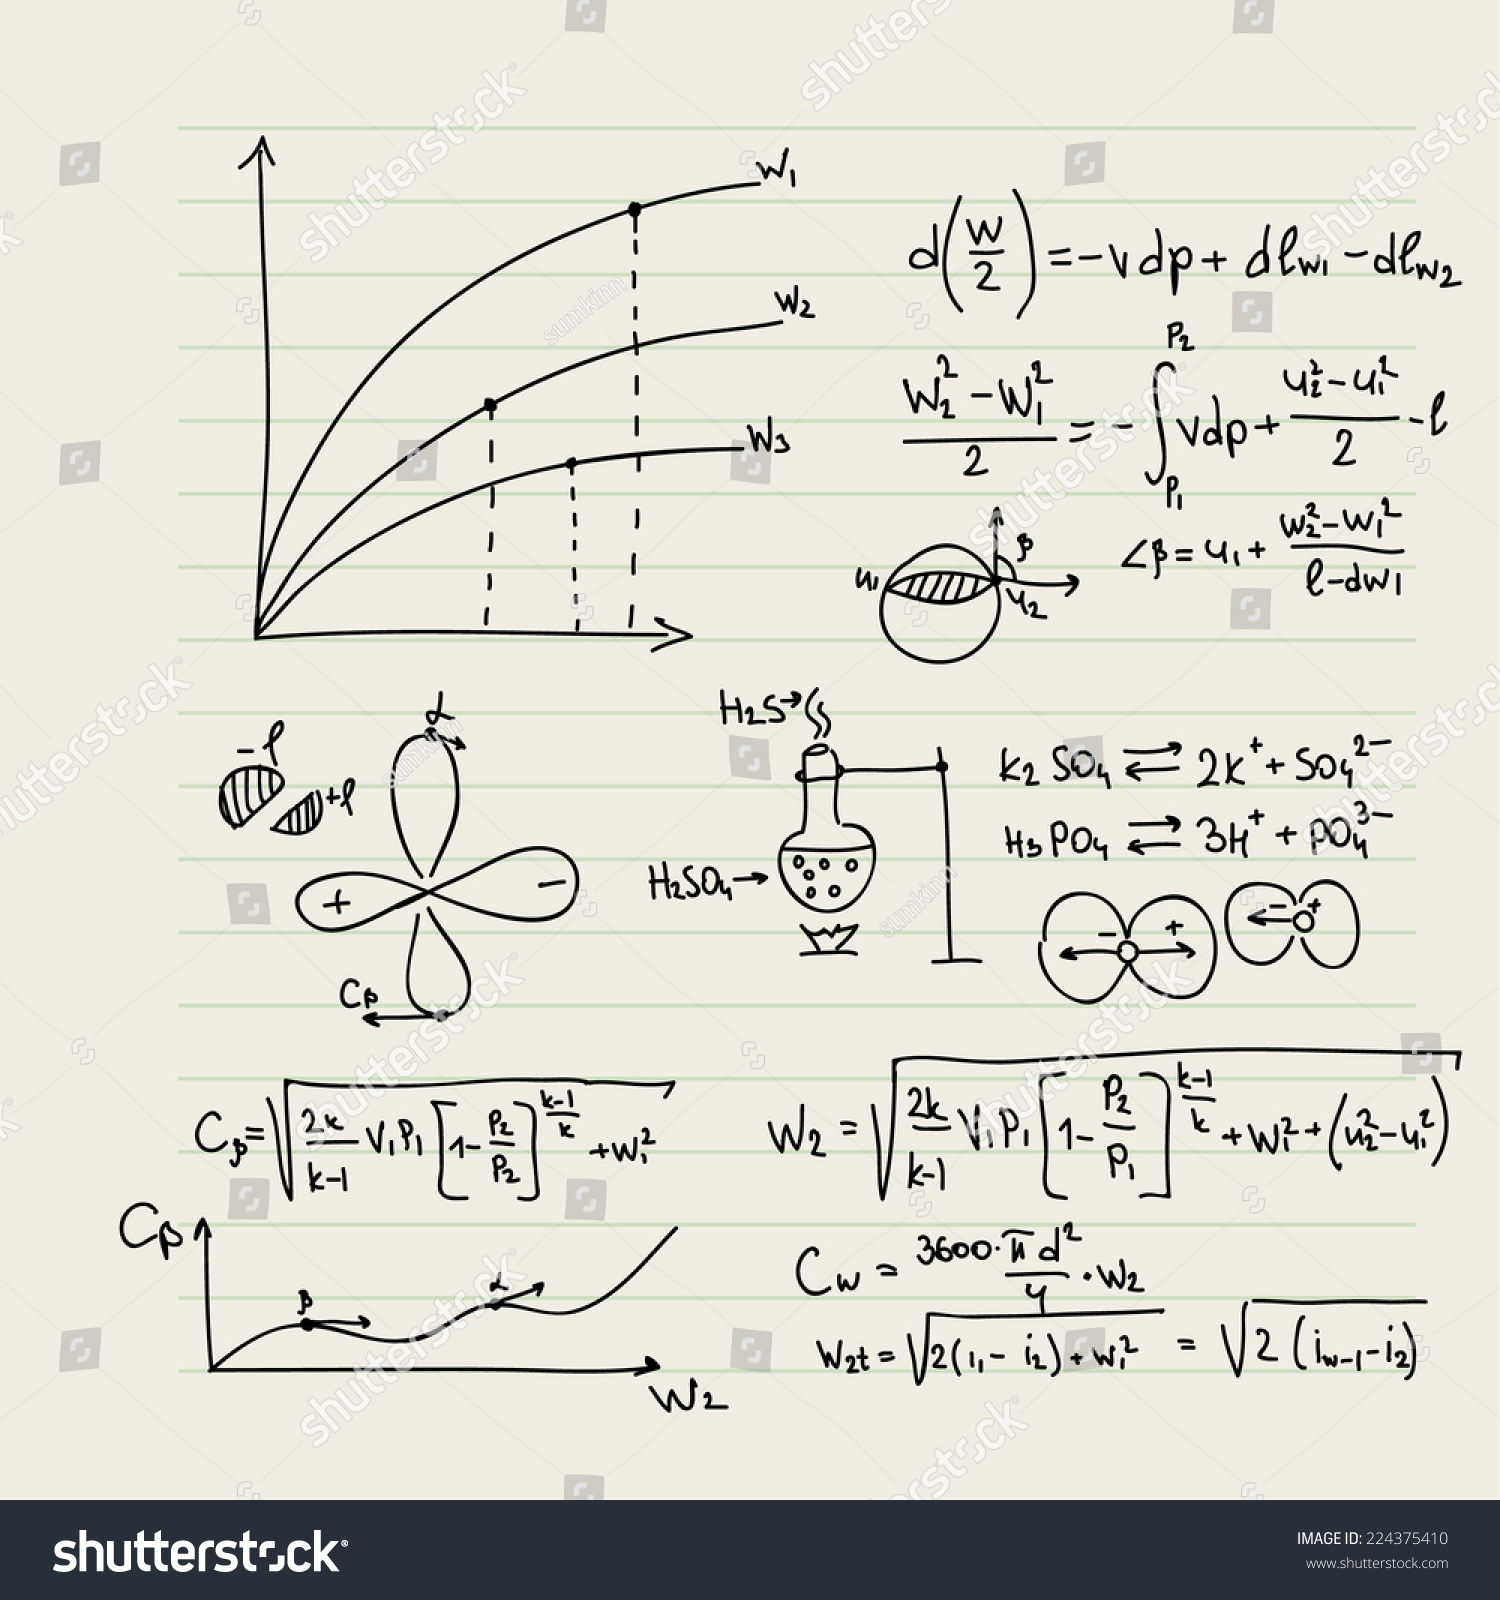 W₁
W₂
W₃
d(w/2) = -vdp + dℓw₁ - dℓw₂
(W₂² - W₁²)/2 = - ∫ P₁ P₂ vdp + (u₂² - u₁²)/2 - ℓ
∠β = u₁ + (w₂² - w₁²)/(ℓ - dw1)
u₁
β
u₂
-ℓ
+ℓ
α
+
−
Cβ
H₂S→
H₂SO₄→
K₂SO₄ ⇄ 2K⁺ + SO₄²⁻
H₃PO₄ ⇄ 3H⁺ + PO₄³⁻
− +
− +
Cβ = √(2k/(k-1) V₁P₁ [1 - P₂/P₂]^((k-1)/k) + W₁²
W₂ = √(2k/(k-1) V₁P₁ [1 - P₂/P₁]^((k-1)/k) + W₁² + (u₂² - u₁²)
Cβ
β
α
W₂
Cw = 3600·πd²/4 · W₂
W₂t = √2(i₁ - i₂) + w₁² = √2(iw-1 - i₂)
shutterstock
sumkinn
shutterstock
IMAGE ID: 224375410
www.shutterstock.com